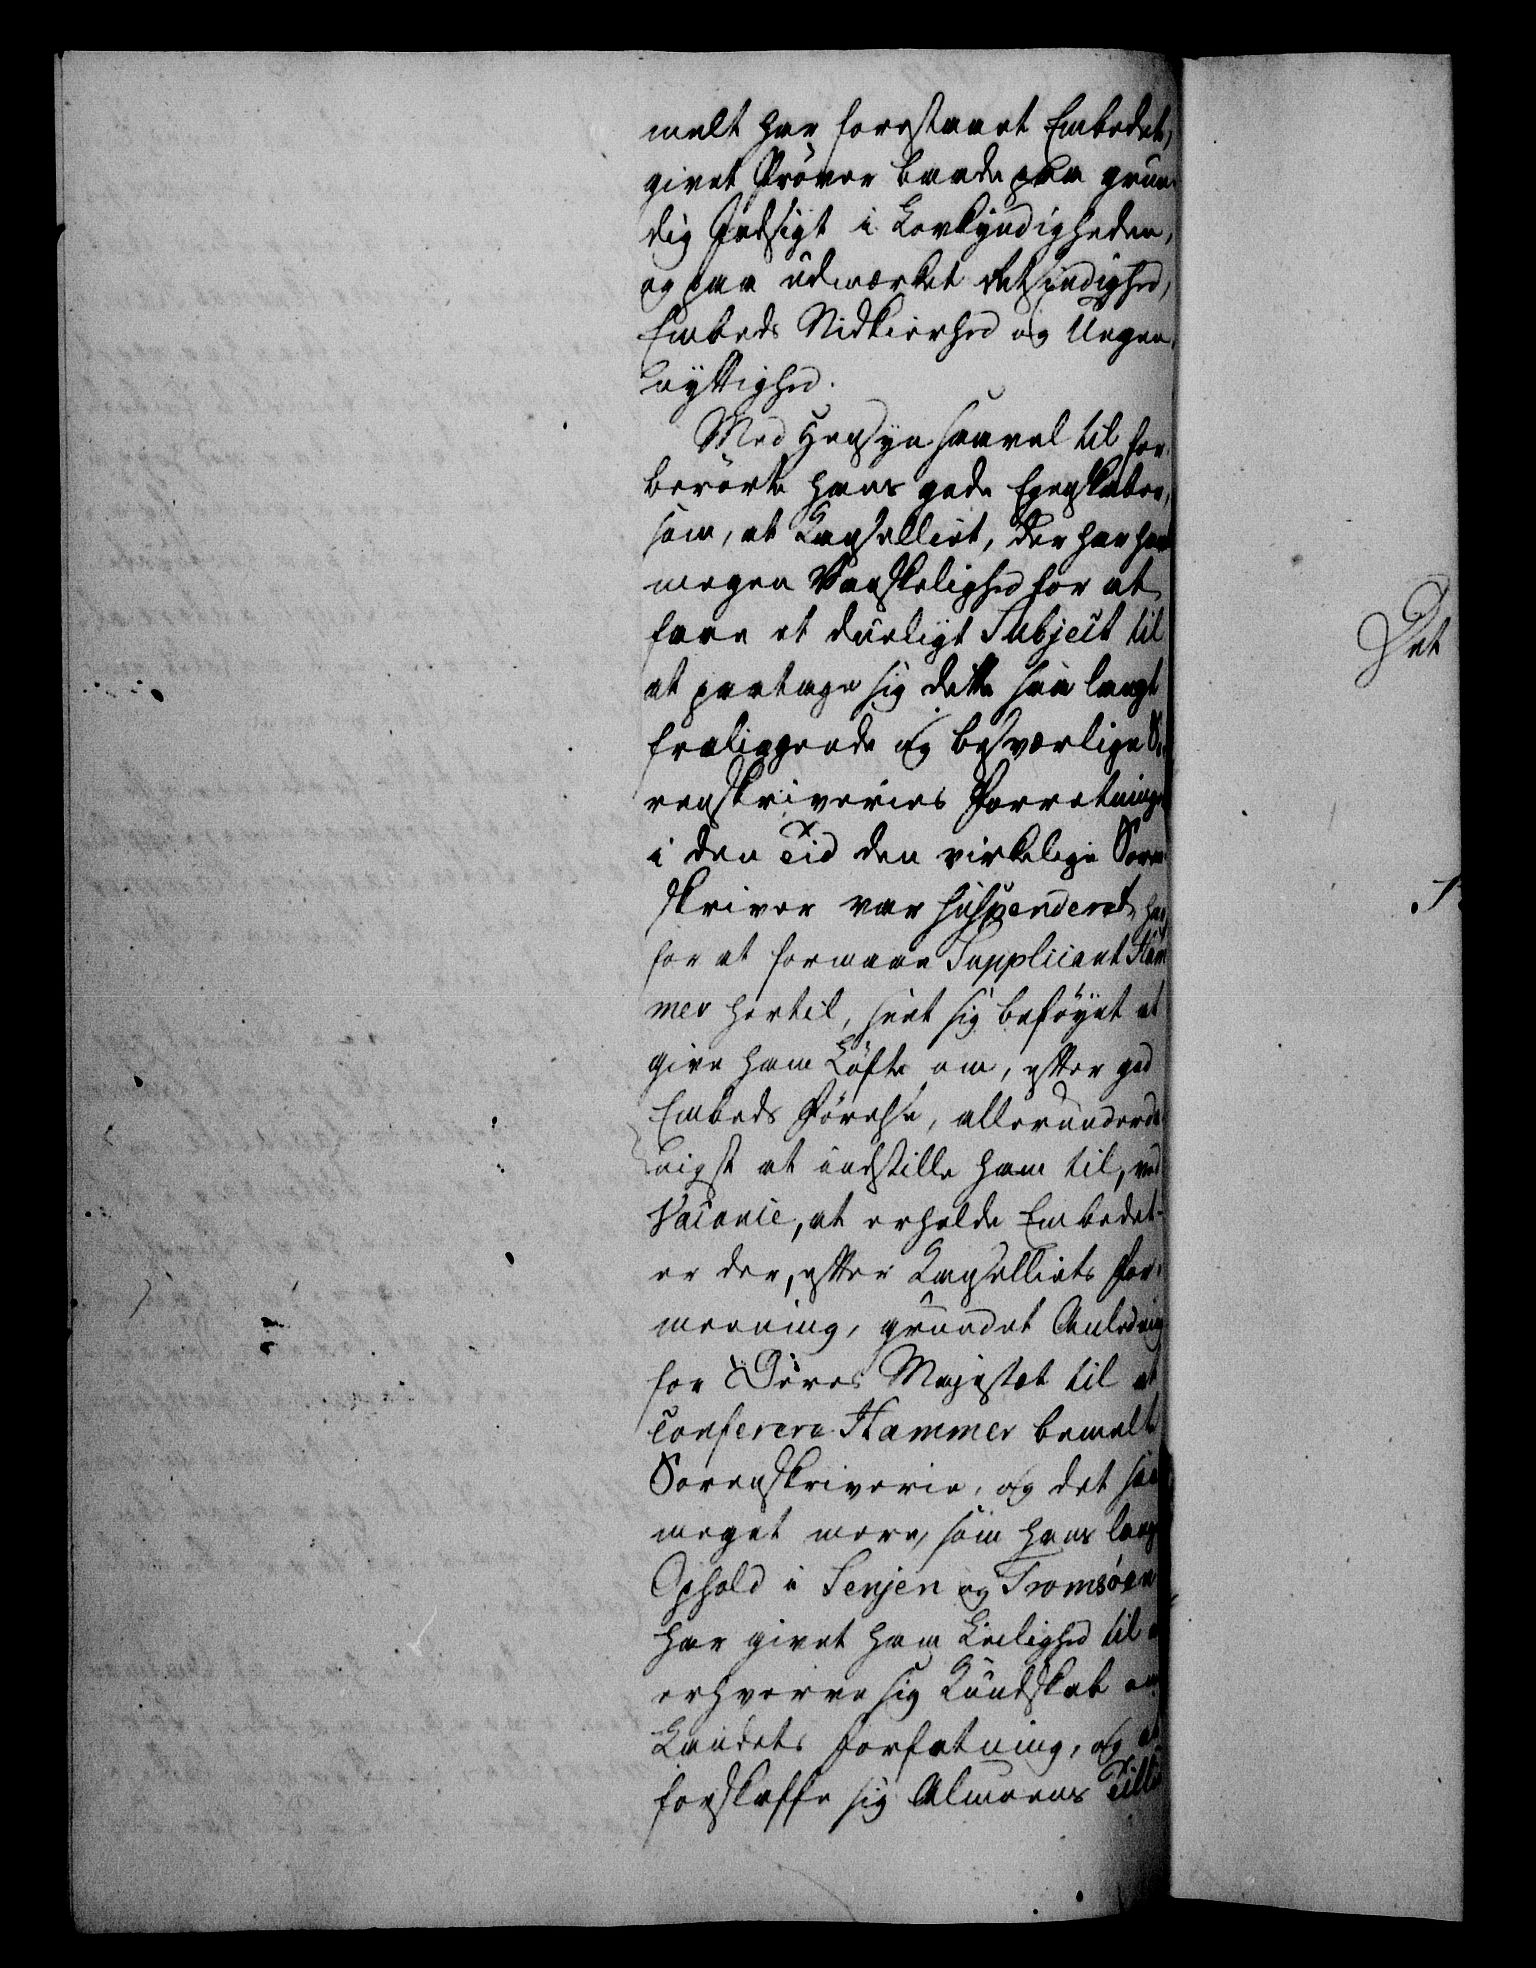 melt har forestaaet Embedet,
givet Prøver baade paa grun-
dig Indsigt i Lovkyndigheden,
og paa udmærket Retsindighed,
Embeds Nidkierhed og Uegen-
nyttighed.
Med Hensyn saavel til for-
berørte hans gode Egenskaber,
som, at Cancelliet, der har hav
megen Vanskelighed for at
faae et dueligt Subject til
at paatage sig dette saa langt
fraliggende og besværlige So-
renskriveries Forretninger
i den Tid den virkelige Soren-
skriver var suspenderet, har
for at formaae Supplicant Ham-
mer hertil, seet sig beføyet at
give ham Løfte om, efter god
Embeds Førelse, allerunderda-
nigst at indstille ham til, ved
Vacance, at erholde Embedet-
er der, efter Cancelliets For-
meening, grundet Anledning
for Deres Majestæt til at
conferere Hammer bemelte
Sorenskriverie, og det saa
meget mere, som hans lange
Ophold i Senjen og Tromsøen
har givet ham Leilighed til a
erhverve sig Kundskab om
Landets Forfatning, og at
forskaffe sig Almeens Tillid
Det